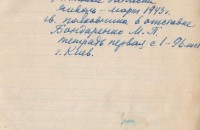 области
январь - март 1943 г.
гв. полковника в отставке
Бондаренко М. П.
тетрадь первая с 1-96 лист
г. Киев.